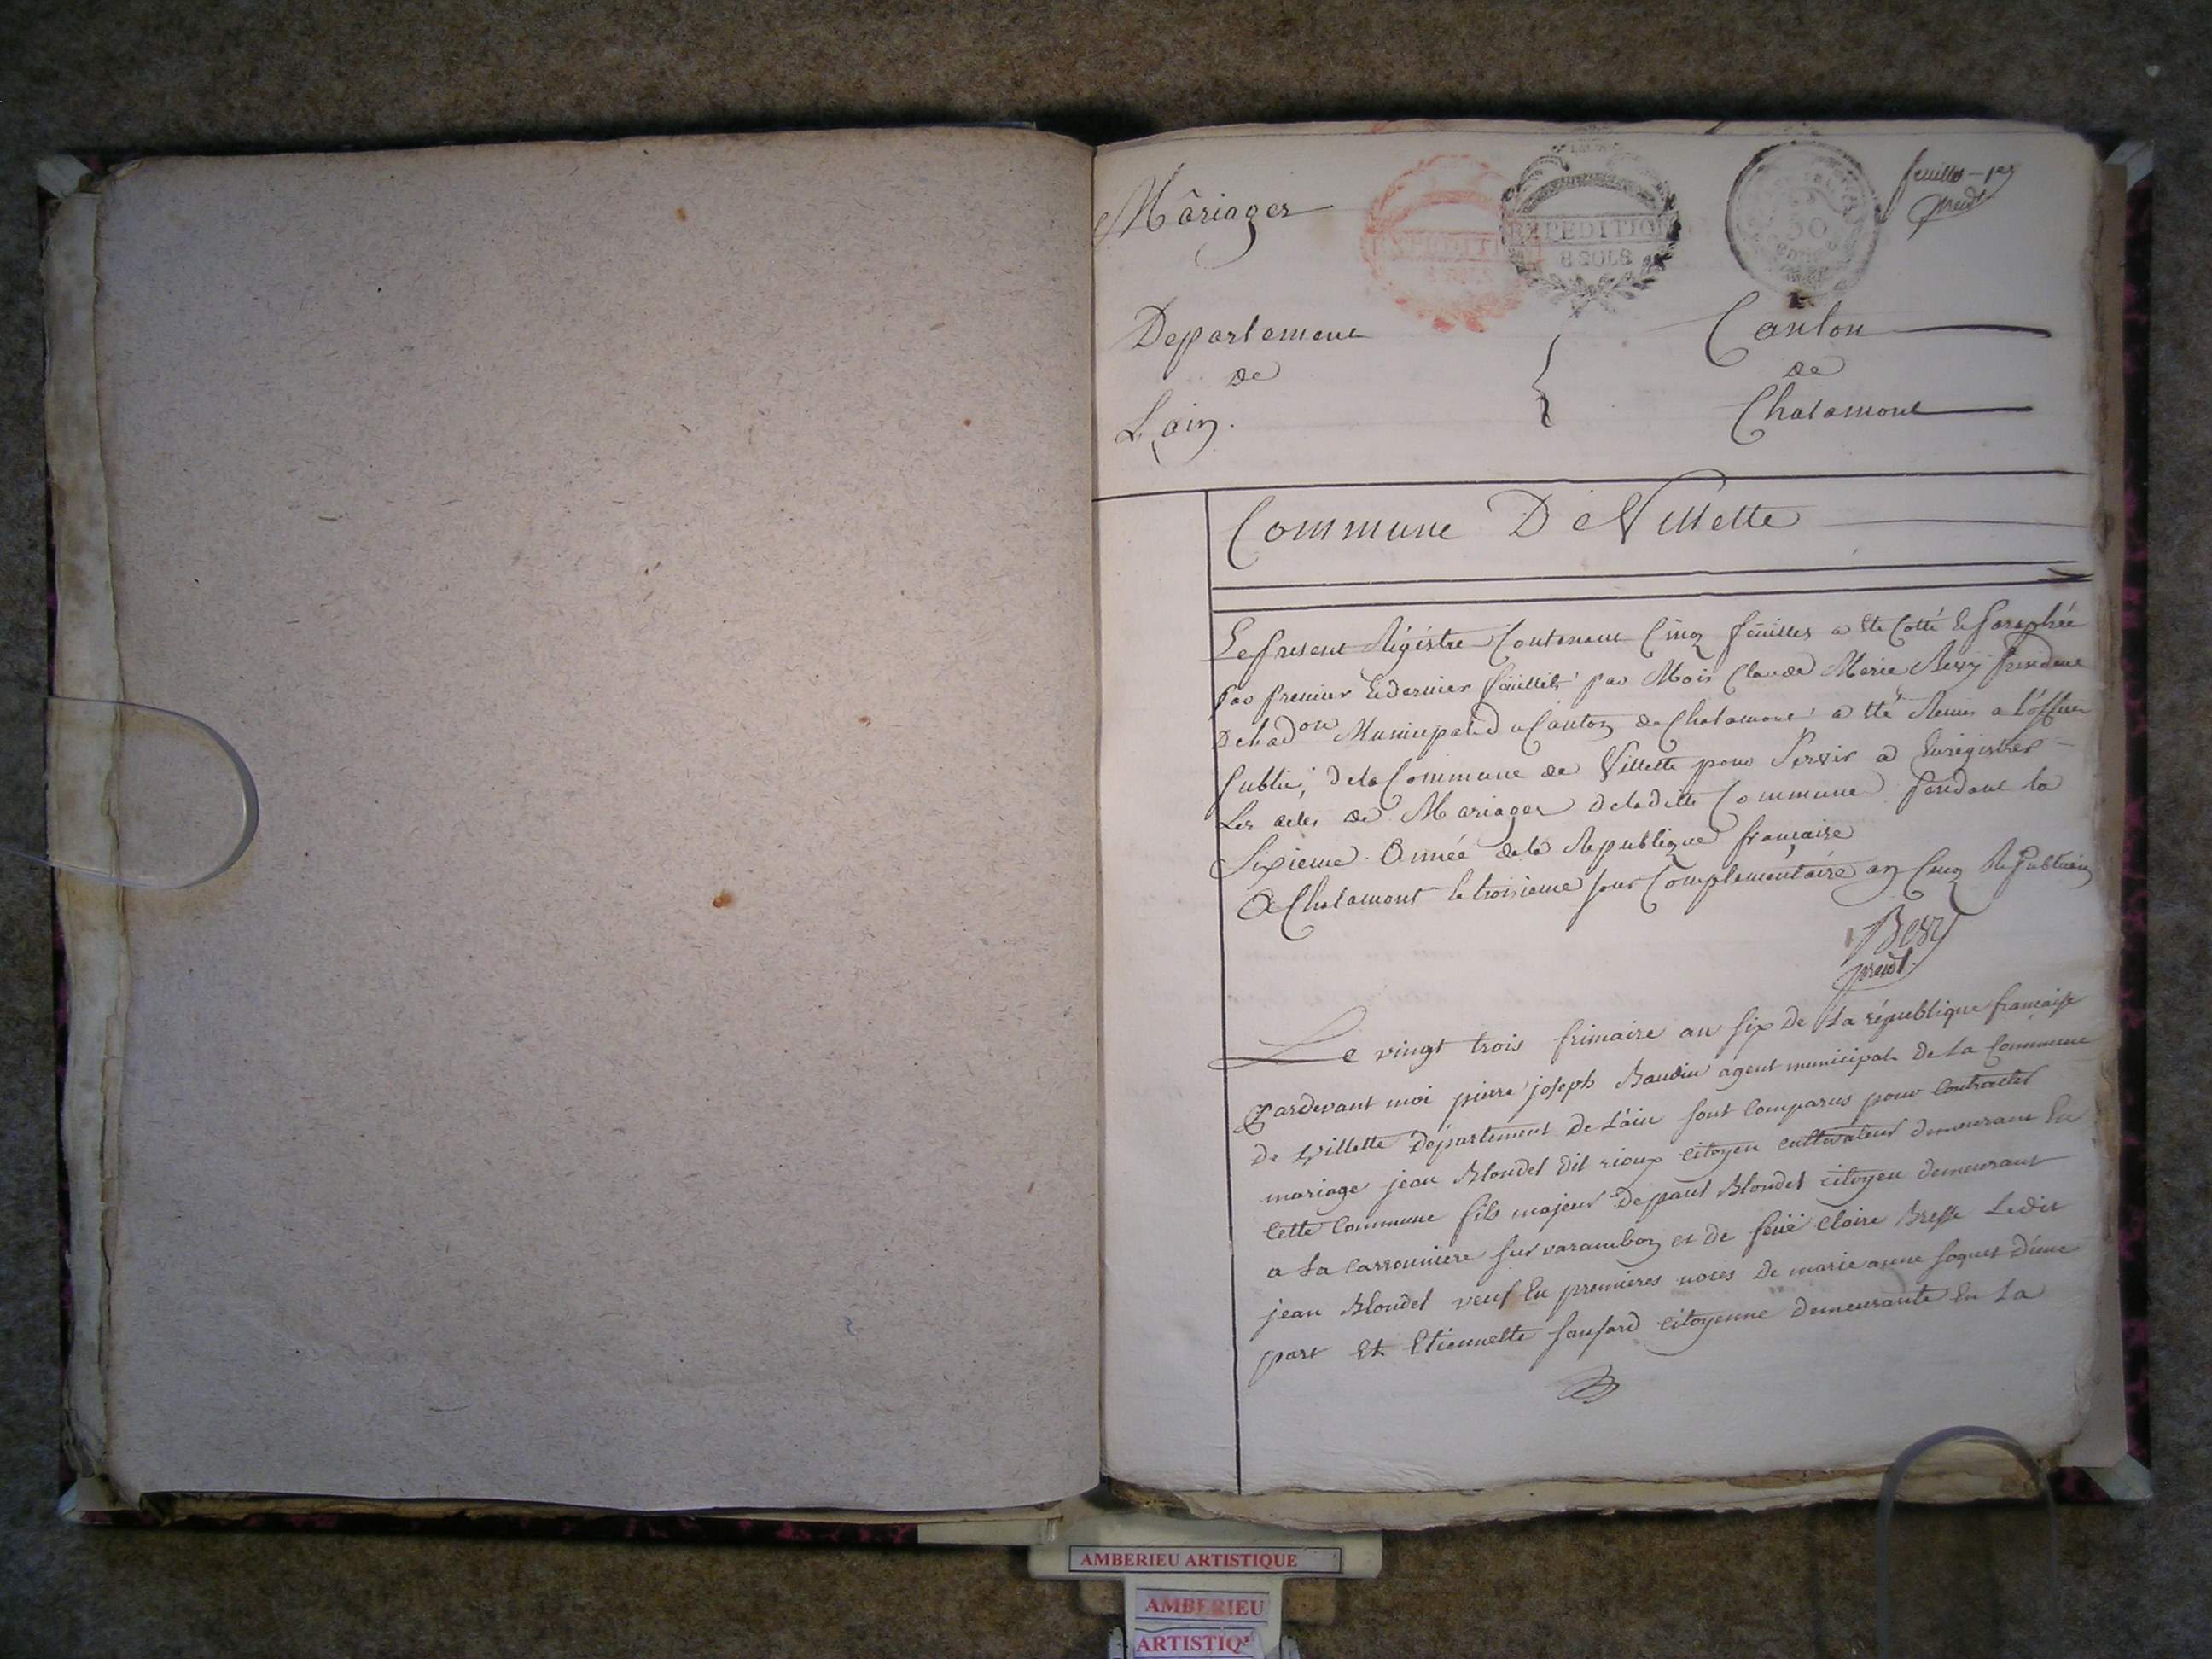 Mâriages
EXPEDITION
EXPEDITION
8 SOLS
50
feuillet 1er
presdt
Departement
de
L'ain.
Canton
de
Chalamont
Commune De Villette
Le present Régistre Contenant Cinq feüilles a Eté Cotté Et Paraphée
Par premier Et dernier feüillet par Mois Claude Marie President
De L'adon Municipale du Canton de Chalamont a eté Remis a L'officier
Public, de la Commune de Villette pour Servir a Enrégistrer
Les actes de Mariages de laditte Commune Pendant la
Sixieme Année de la Republique française
A Chalamont le troisieme jour Complémentaire an Cinq Republicain
presdt.
Le vingt trois frimaire an six De La république française
Pardevant moi pierre joseph Baudin agent municipal De La Commune
de Villette Département De L'ain sont Comparus pour Contracter
mariage jean Blondel dit rioux citoyen cultivateur demeurant En
Cette Commune fils majeur De paul Blondel citoyen demeurant
a La Carronniere sur varambon et de feüe Claire Bresse Ledit
jean Blondel veuf En premières noces De marie anne D'une
part Et Etiennette citoyenne demeurante En La
AMBERIEU ARTISTIQUE
AMBERIEU
ARTISTIQ